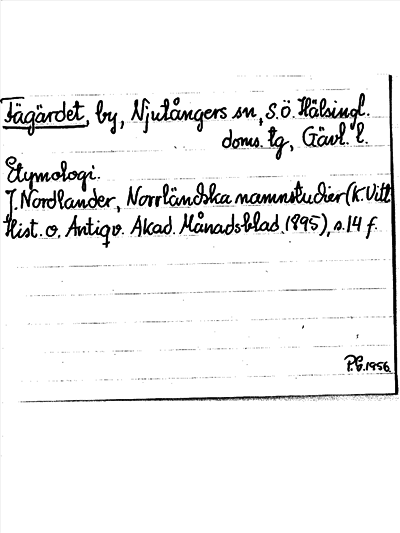 Fägärdet, by, Njutångers sn, S.Ö. Hälsingl.
doms. tg, Gävl. l.
Etymologi.
J. Nordlander, Norrländska namnstudier (K. Vitt.
Hist. o. Antiqv. Akad. Månadsblad 1895), s. 14 f.
P.G. 1956